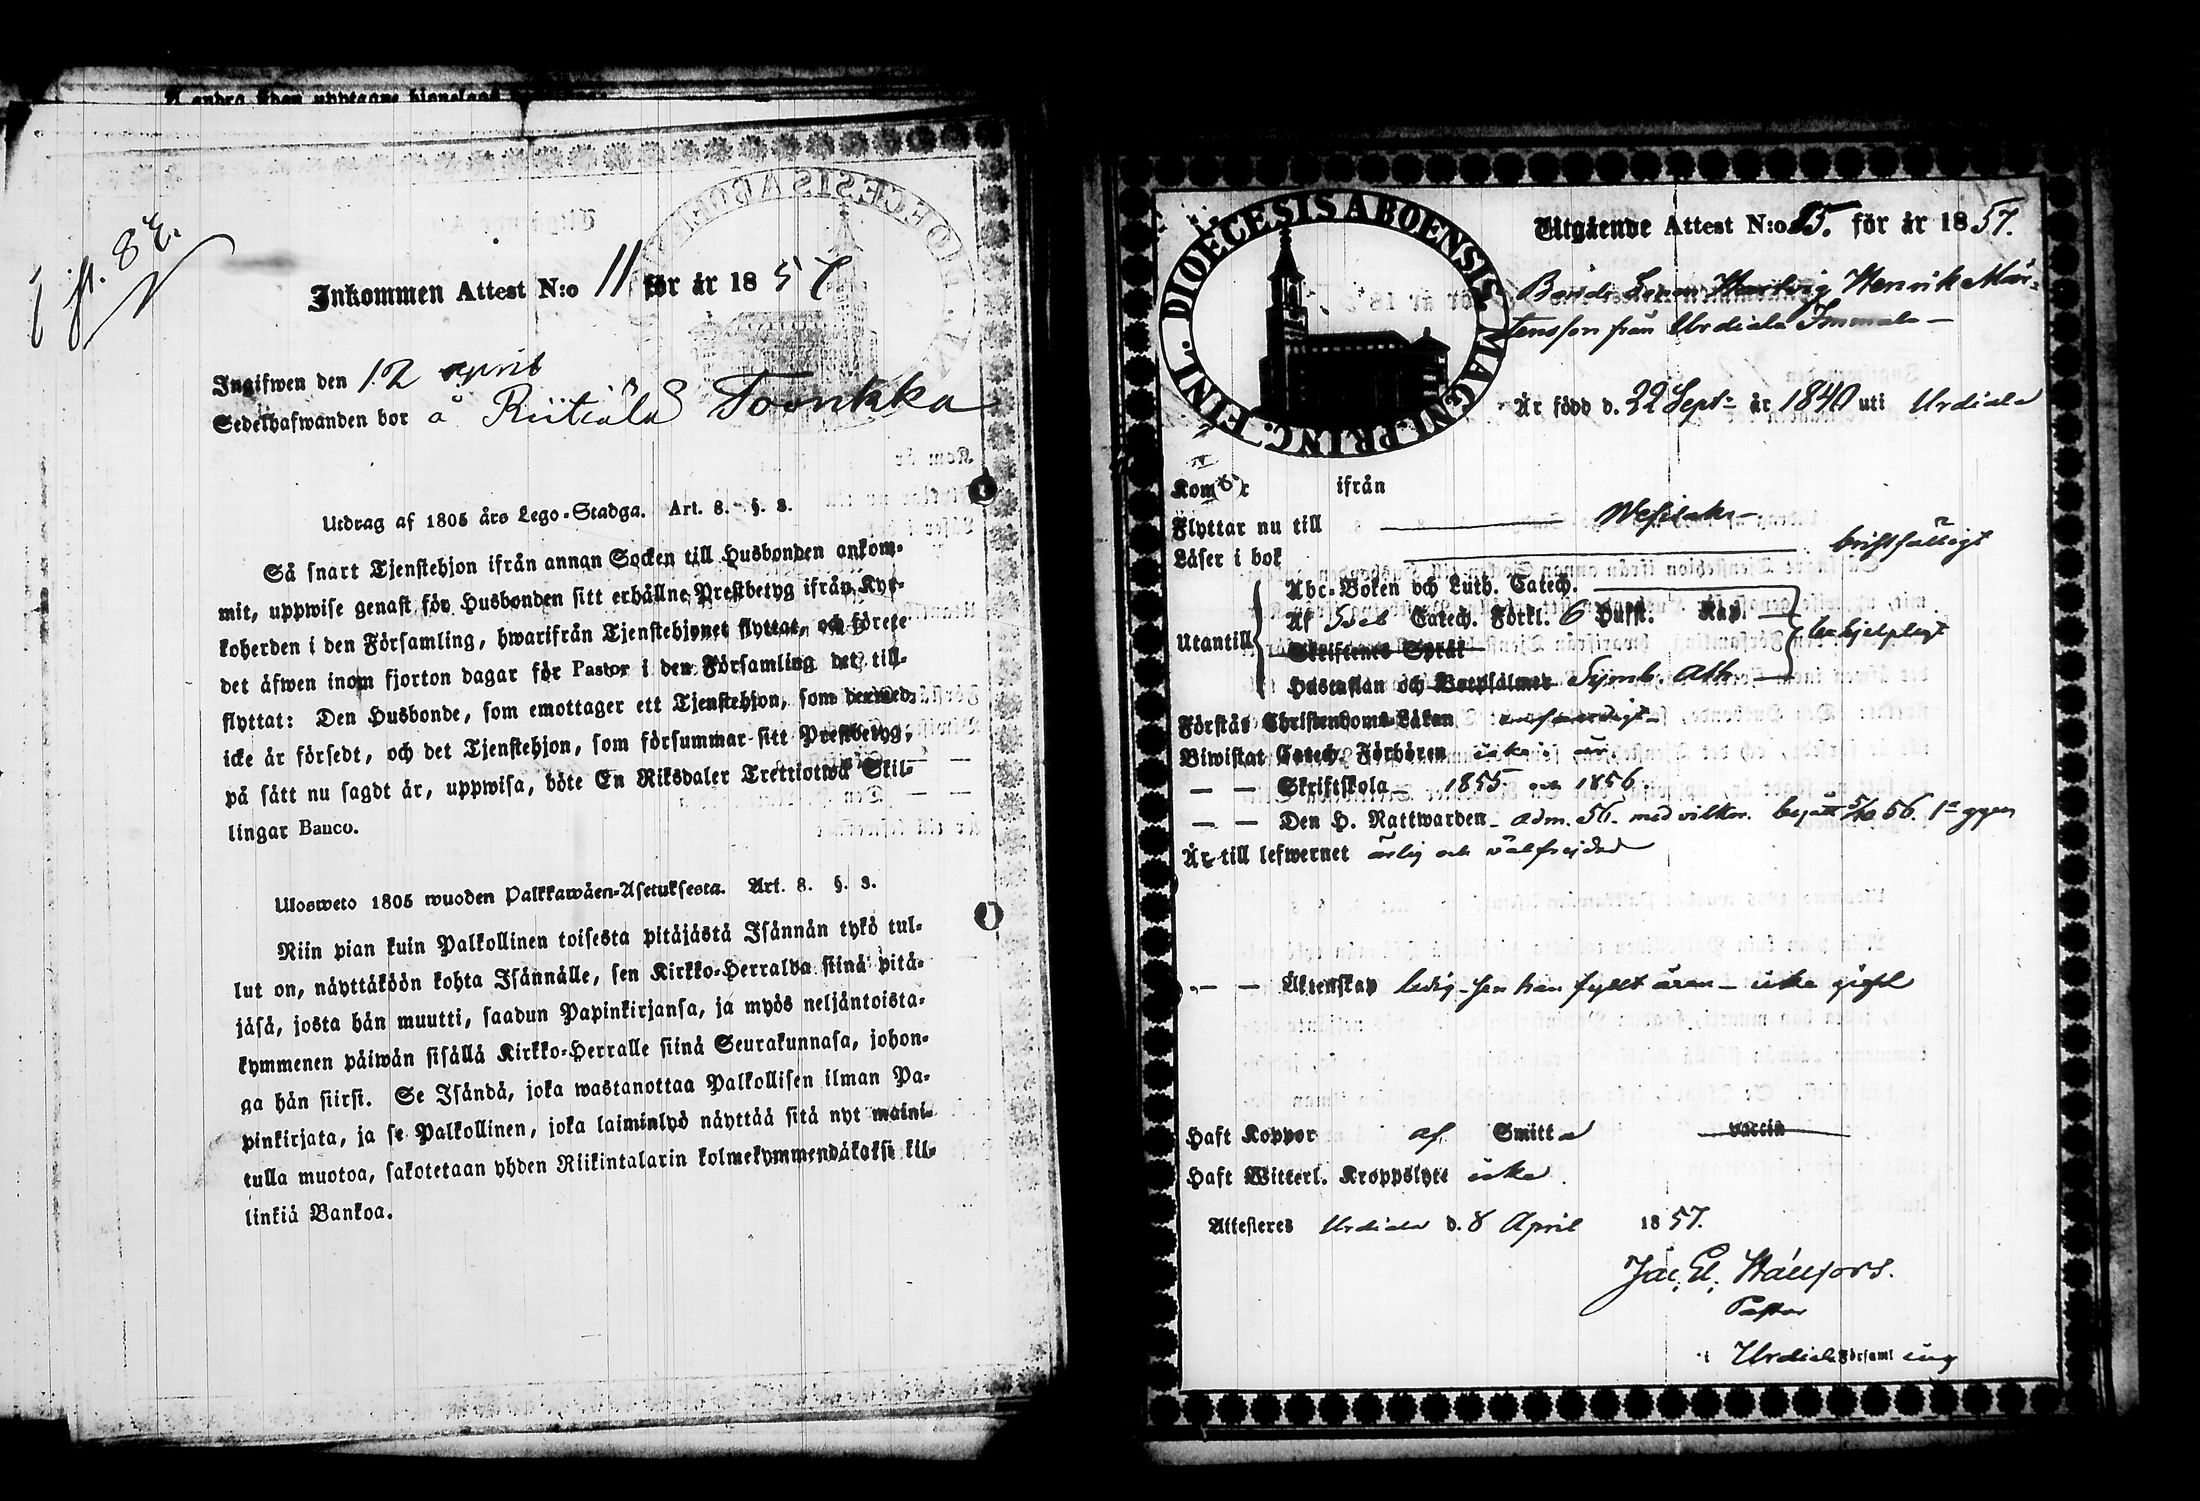 jst. 82.
Inkommen Attest N:o 11 för år 1857
Ingifwen den 12 april
Sedelhafwanden bor å Riitiala Tonkka
Utdrag af 1805 års Lego-Stadga. Art. 8. §. 8.
Så snart Tjenstehjon ifrån annan Socken till Husbonden ankom-
mit, uppwise genast för Husbonden sitt erhållne Prestbetyg ifrån Kyr-
koherden i den Församling, hwarifrån Tjenstehjonet flyttat, och förete
det äfwen inom fjorton dagar för Pastor i den Församling det till-
flyttat: Den Husbonde, som emottager ett Tjenstehjon, som dermed
icke är försedt, och det Tjenstehjon, som försummar sitt Prestbetyg,
på sätt nu sagdt är, uppwisa, böte En Riksdaler Trettiotwå Skil-
lingar Banco.
Ulosweto 1805 wuoden Palkkawäen-Asetuksesta. Art. 8. §. 8.
Niin pian kuin Palkollinen toisesta pitäjästä Isännän tykö tul-
lut on, näyttäköön kohta Isännälle, sen Kirkko-Herralda siinä pitä-
jäsä, josta hän muutti, saadun Papinkirjansa, ja myös neljäntoista-
kymmenen päiwän sisällä Kirkko-Herralle siinä Seurakunnasa, johon-
ga hän siirsi. Se Isändä, joka wastanottaa Palkollisen ilman Pa-
pinkirjata, ja se Palkollinen, joka laiminlyö näyttää sitä nyt maini-
tulla muotoa, sakotetaan yhden Riikintalarin kolmekymmendäkaksi kil-
linkiä Bankoa.
DIOECESIS ABOENSIS MAGNI PRINC. FINL.
Utgående Attest N:o 15. för år 1857.
Bonde Sonen Henrik Mår-
tensson från Urdiala Immala
Är född d. 22 Sept. år 1840 uti Urdiala
Kom år ifrån
Flyttar nu till Wesilaks
Läser i bok bristfälligt
Abc-Boken och Luth. Catech.
Utantill Af Catech. Förkl. 6 Husst. Kap. behjelpligt
Skriftenes Språk
Hustaflan och Botpsalmer Symb. Ath.
Förstår Christendoms-Läran
Biwistat Catech. Förhören icke i år
— — Skriftskola 1855 och 1856.
— — Den H. Nattwarden adm. 56. med vilkor. begått 5/10 56. 1a ggen
Är till lefwernet ärlig och välfrejdad
— — Äktenskap ledig sen han fyllt åren icke gift
Haft Koppor af Smitta vaccin
Haft Witterl. Kroppslyte icke
Attesteres Urdiala d. 8 April 1857.
Jac. El. Hällfors.
Pastor
i Urdiala Församling